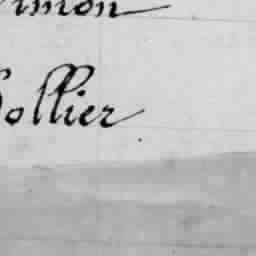 imon
ollier